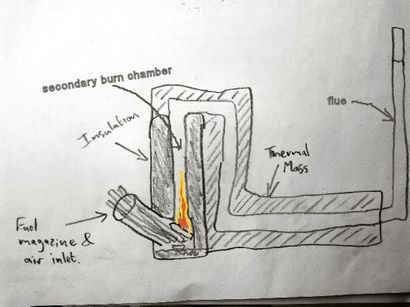 secondary burn chamber
Insulation
flue
Thermal
Mass
Fuel
magazine &
air inlet.